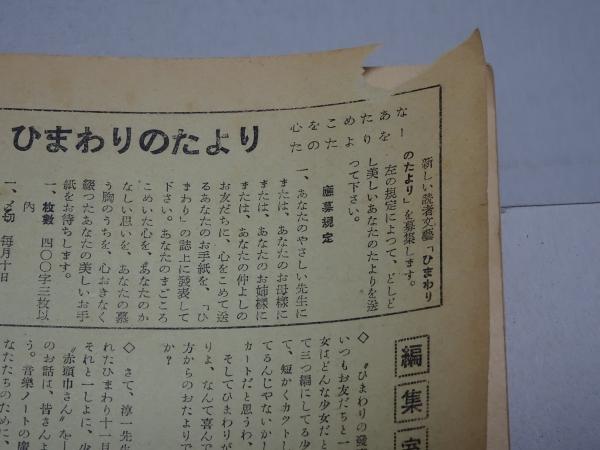 ひまわりのたより
新しい読者文藝「ひまわり
のたより」を募集します。
左の規定によつて、どしど
し美しいあなたのたよりを送
つて下さい。
應募規定
一、あなたのやさしい先生に
または、あなたのお母様に
または、あなたのお姉様に
または、あなたの仲よしの
お友だちに、心をこめて送
るあなたのお手紙を、「ひ
まわり」の誌上に発表して
下さい。あなたのまごころ
こめいた心を、あなたのか
なしい思いを、あなたの慕
う胸のうちを、心おきなく
綴つたあなたの美しいお手
紙をお待ちします。
一、枚數　四〇〇字三枚以
内
一、〆切　毎月十日
編集室
◇　〝ひまわりの發
いつもお友だちと一
女はどんな少女だと
て三つ編にしてる少
て、短かくカットし
てるんじゃないかし
カートだと思うわ、
そしてひまわりが
りよ、なんて喜んで
方からのおたよりで
か？
◇　さて、淳一先生
れたひまわり十一月
それと一しよに、少
〝赤頭巾さん〟をし
のお話は、皆さんよ
う。音樂ノートの魔
なたたちのために、